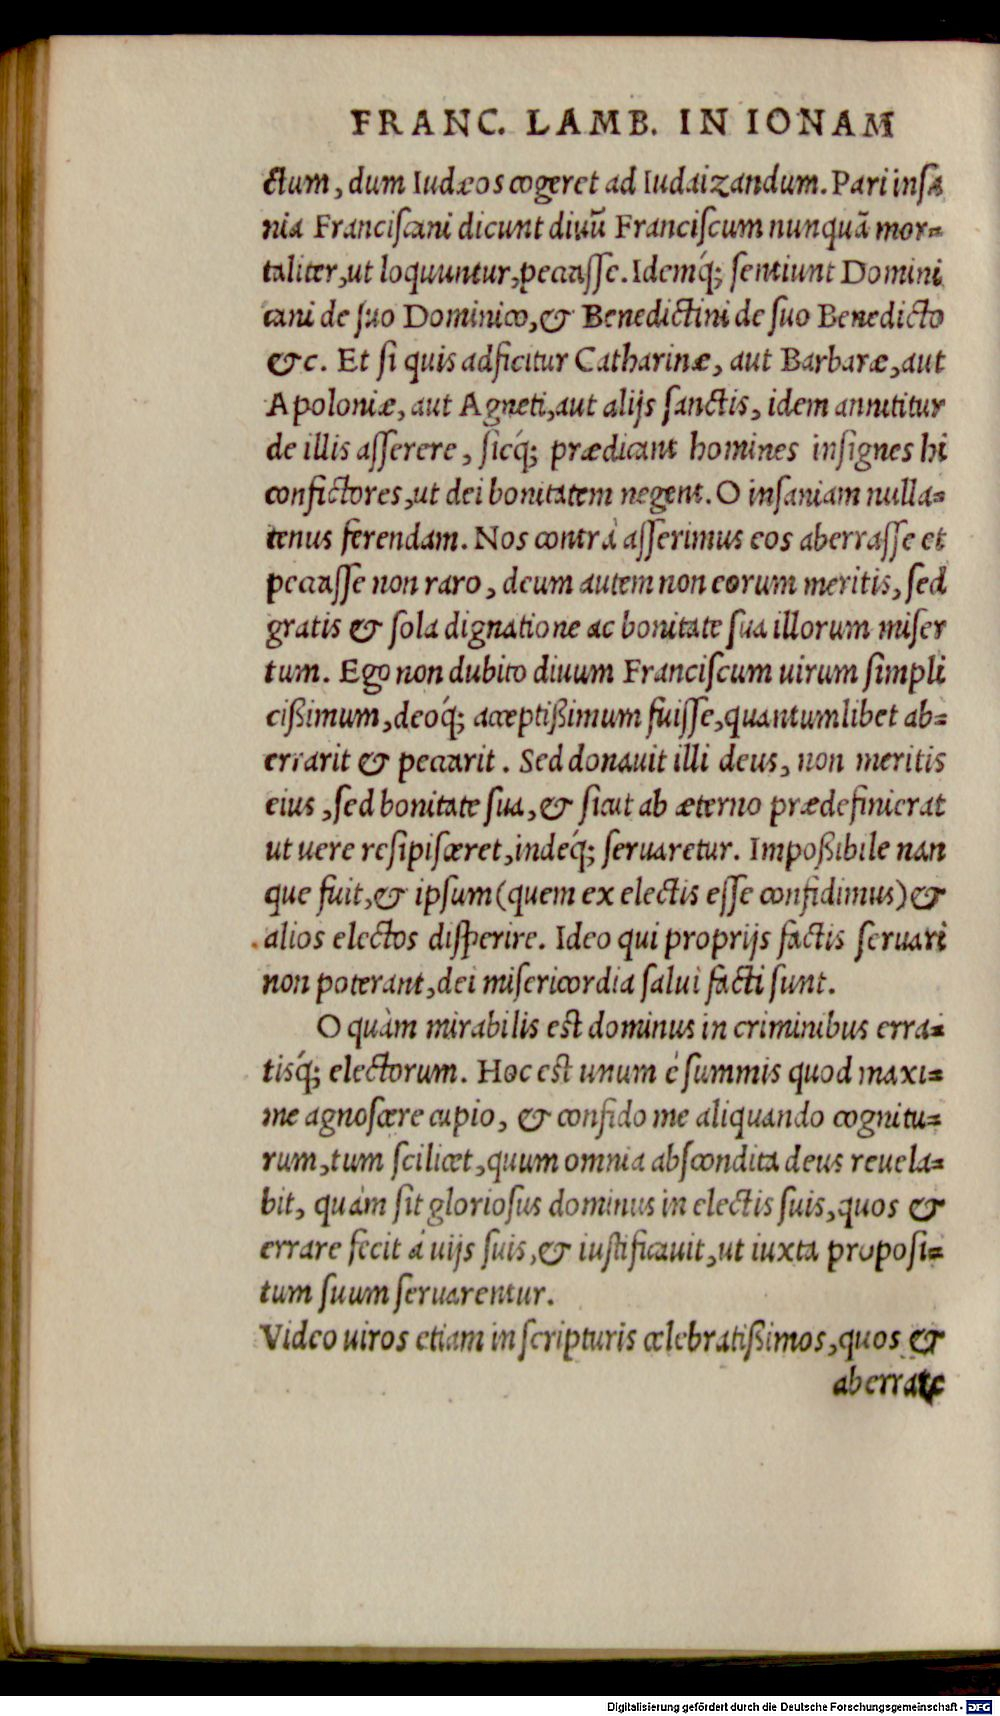 FRANC. LAMB. IN IONAM
ctum, dum Iudæos cogeret ad Iudaizandum. Pari insa
nia Franciſcani dicunt diuũ Franciſcum nunquã mor-
taliter, ut loquuntur, peccaſſe. Idemq́; ſentiunt Domini
cani de ſuo Dominico, & Benedictini de ſuo Benedicto
&c. Et ſi quis adficitur Catharinæ, aut Barbaræ, aut
Apoloniæ, aut Agneti, aut alijs ſanctis, idem annititur
de illis aſſerere, ſicq́; prædicant homines inſignes hi
confictores, ut dei bonitatem negent. O inſaniam nulla-
tenus ferendam. Nos contrà aſſerimus eos aberraſſe et
peccaſſe non raro, deum autem non eorum meritis, ſed
gratis & ſola dignatione ac bonitate ſua illorum miſer
tum. Ego non dubito diuum Franciſcum uirum ſimpli
cißimum, deoq́; acceptißimum fuiſſe, quantumlibet ab-
errarit & peccarit. Sed donauit illi deus, non meritis
eius, ſed bonitate ſua, & ſicut ab æterno prædefinierat
ut uere reſipiſceret, indeq́; ſeruaretur. Impoßibile nan
que fuit, & ipſum (quem ex electis eſſe confidimus) &
alios electos diſperire. Ideo qui proprijs factis ſeruari
non poterant, dei miſericordia ſalui facti ſunt.
O quàm mirabilis est dominus in criminibus erra-
tisq́; electorum. Hoc est unum è ſummis quod maxi-
me agnoſcere cupio, & confido me aliquando cognitu-
rum, tum ſcilicet, quum omnia abſcondita deus reuela-
bit, quàm ſit glorioſus dominus in electis ſuis, quos &
errare fecit á uijs ſuis, & iuſtificauit, ut iuxta propoſi-
tum ſuum ſeruarentur.
Video uiros etiam in ſcripturis celebratißimos, quos &
aberrare
Digitalisierung gefördert durch die Deutsche Forschungsgemeinschaft - DFG